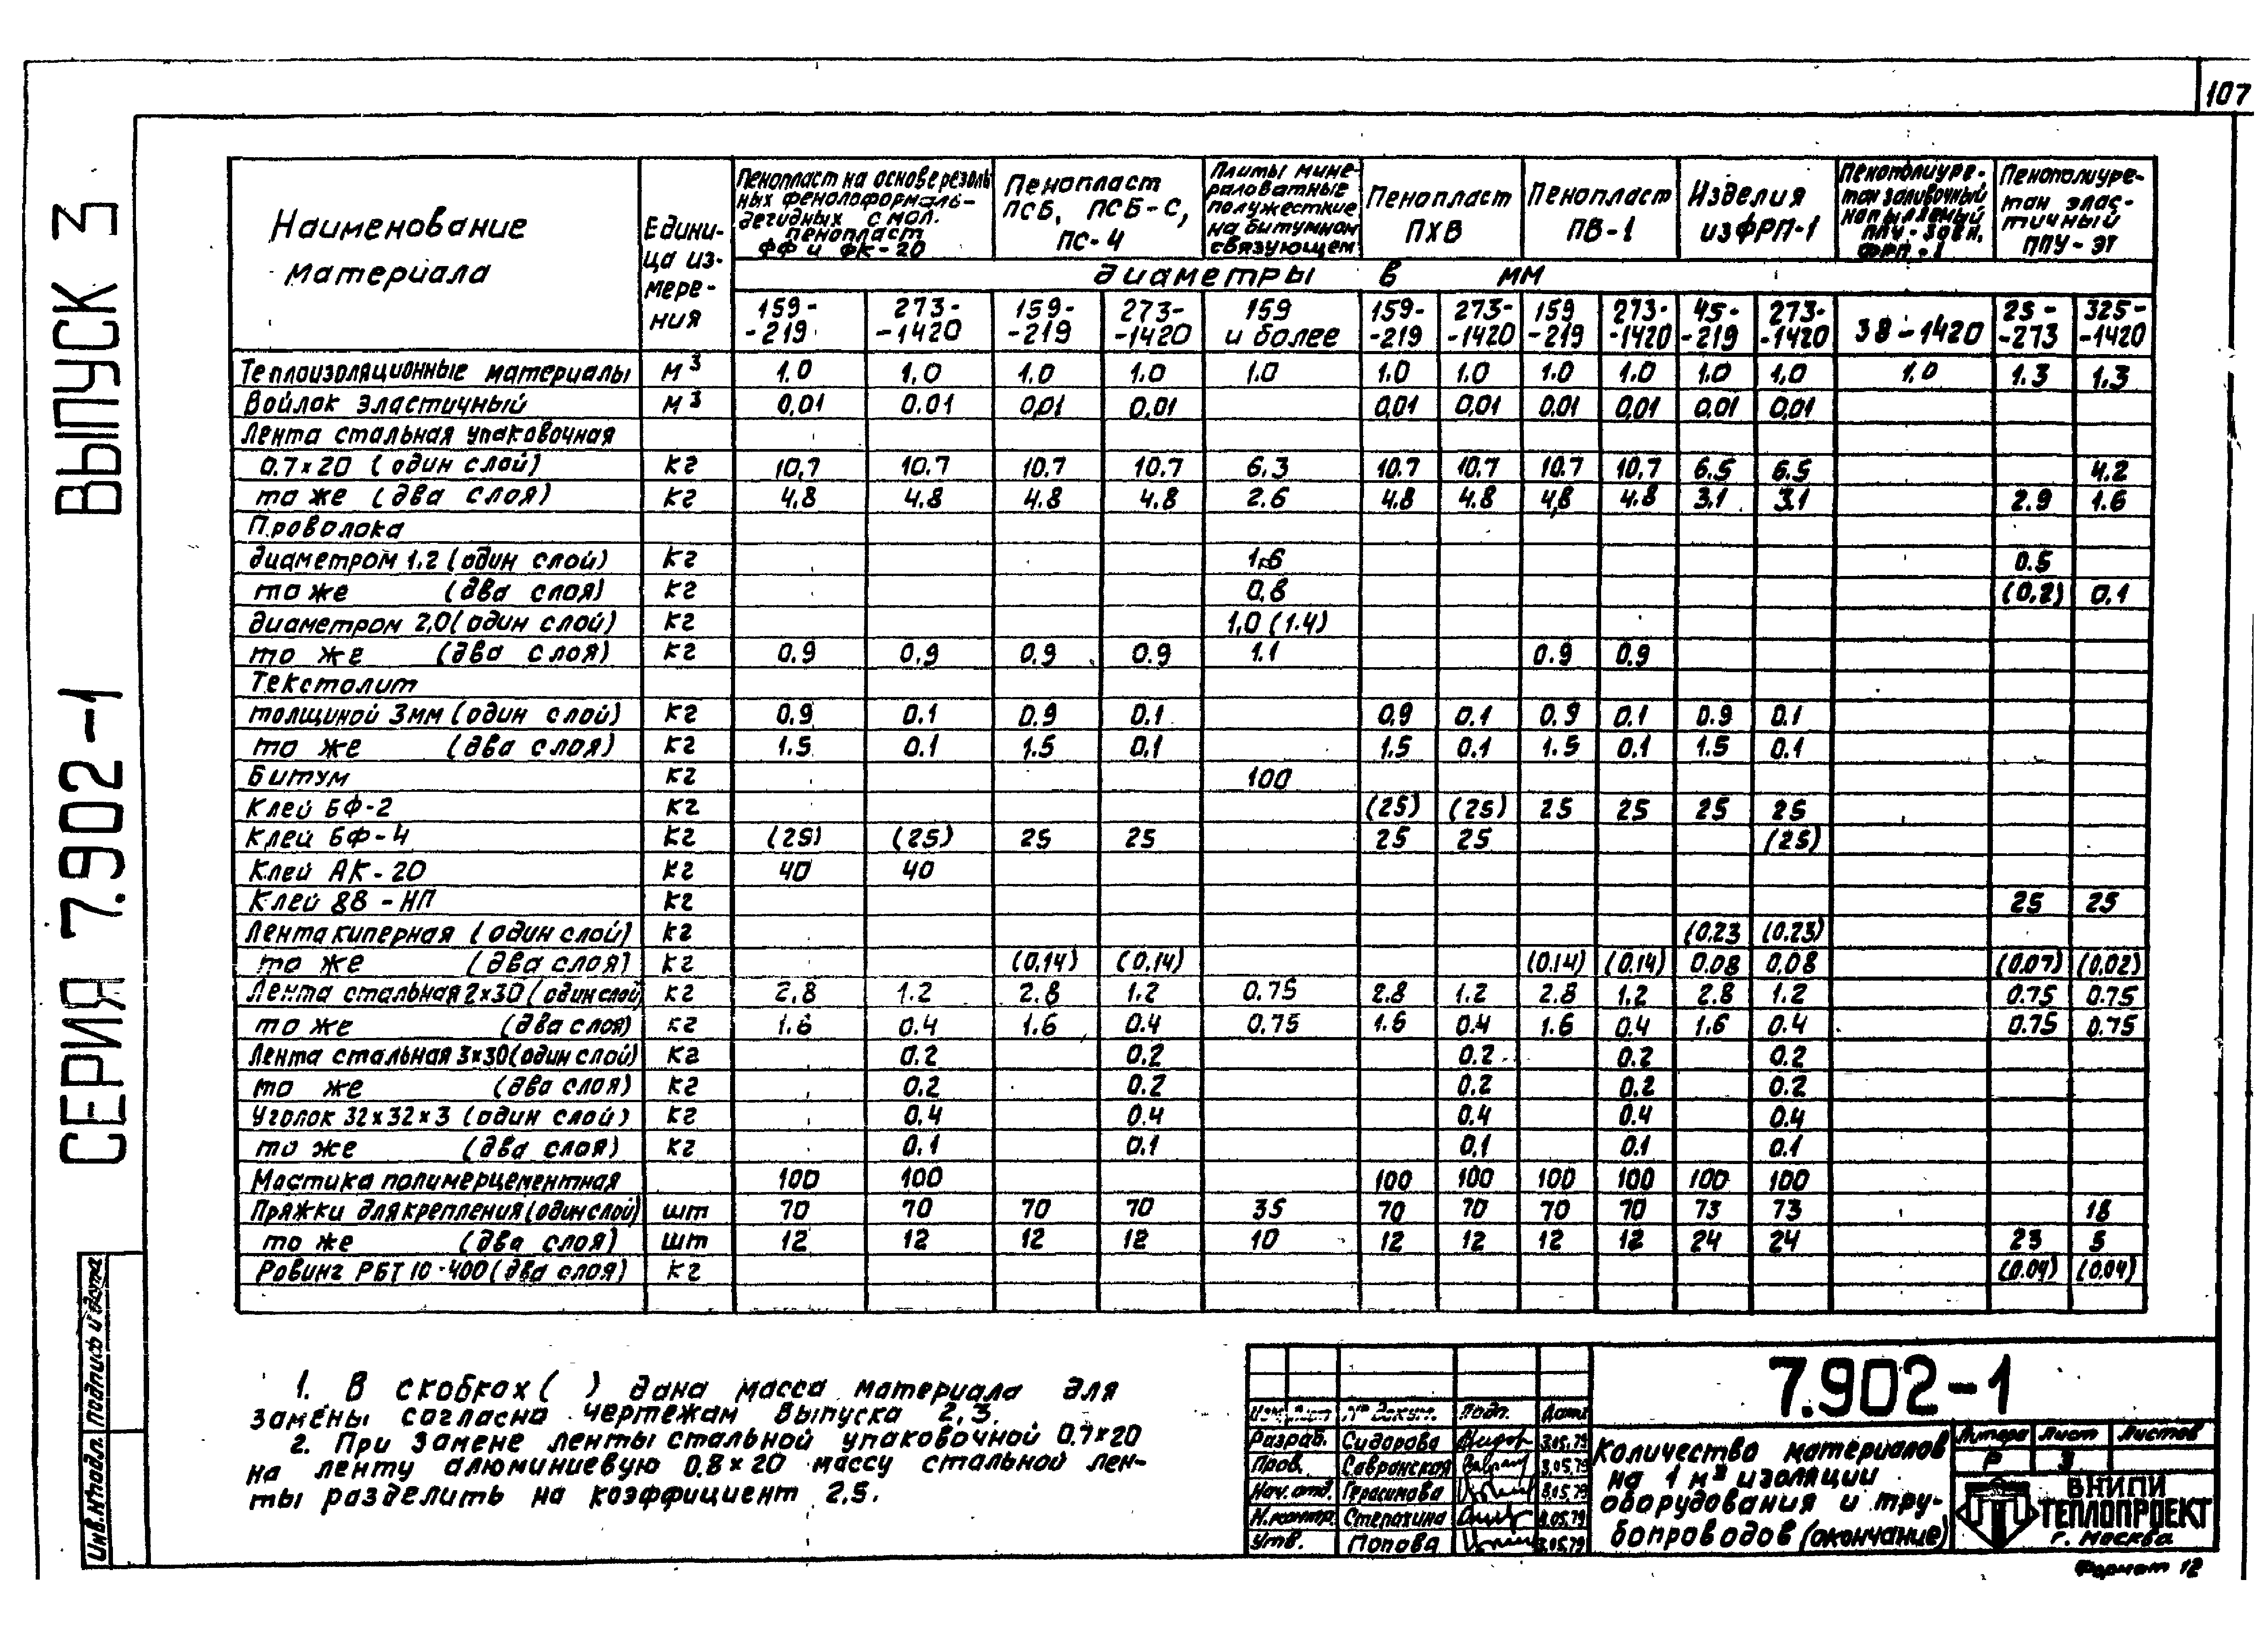 107
СЕРИЯ 7.902-1 ВЫПУСК 3
Наименование материала
Едини-
ца из-
мере-
ния
Пенопласт на основе резоль
ных фенолоформаль-
дегидных смол.
пенопласт
ФФ и ФК-20
Пенопласт
ПСБ, ПСБ-С,
ПС-4
Плиты мине-
раловатные
полужесткие
на битумном
связующем
Пенопласт
ПХВ
Пенопласт
ПВ-1
Изделия
из ФРП-1
Пенополиуре-
тан заливочный
напыляемый
ППУ-308 Н,
ФРП-1
Пенополиуре-
тан элас-
тичный
ППУ-ЭТ
диаметры в мм
159- -219 273- -1420 159- -219 273- -1420 159 и более 159- -219 273- -1420 159 -219 273- -1420 45- -219 273- -1420 38-1420 25- -273 325- -1420
Теплоизоляционные материалы м3 1.0 1.0 1.0 1.0 1.0 1.0 1.0 1.0 1.0 1.0 1,0 1.0 1.3 1.3
Войлок эластичный м3 0,01 0.01 0,01 0,01 0,01 0,01 0,01 0,01 0,01 0,01
Лента стальная упаковочная
0.7×20 (один слой) кг 10,7 10.7 10.7 10.7 6.3 10.7 10.7 10.7 10,7 6.5 6.5 4.2
то же (два слоя) кг 4.8 4.8 4.8 4.8 2.6 4.8 4.8 4,8 4.8 3.1 3.1 2.9 1.6
Проволока
диаметром 1.2 (один слой) кг 1,6 0.5
то же (два слоя) кг 0,8 (0.2) 0.1
диаметром 2,0 (один слой) кг 1,0 (1.4)
то же (два слоя) кг 0.9 0,9 0.9 0.9 1.1 0.9 0.9
Текстолит
толщиной 3мм (один слой) кг 0.9 0.1 0.9 0.1 0.9 0.1 0.9 0.1 0.9 0.1
то же (два слоя) кг 1.5 0.1 1.5 0,1 1.5 0.1 1.5 0.1 1.5 0.1
Битум кг 100
Клей БФ-2 кг (25) (25) 25 25 25 25
Клей БФ-4 кг (25) (25) 25 25 25 25 (25)
Клей АК-20 кг 40 40
Клей 88-НП кг 25 25
Лента киперная (один слой) кг (0.23 (0.23)
то же (два слоя) кг (0.14) (0.14) (0.14) (0.14) 0.08 0,08 (0.07) (0.02)
Лента стальная 2×30 (один слой кг 2,8 1.2 2.8 1.2 0.75 2.8 1.2 2.8 1.2 2.8 1.2 0.75 0.75
то же (два слоя) кг 1.6 0.4 1.6 0.4 0.75 1.6 0.4 1.6 0.4 1.6 0.4 0.75 0.75
Лента стальная 3×30 (один слой) кг 0.2 0.2 0.2 0.2 0.2
то же (два слоя) кг 0.2 0.2 0.2 0.2 0.2
Уголок 32×32×3 (один слой) кг 0.4 0.4 0.4 0.4 0.4
то же (два слоя) кг 0.1 0.1 0,1 0.1 0.1
Мастика полимерцементная 100 100 100 100 100 100 100 100
Пряжки для крепления (один слой) шт 70 70 70 70 35 70 70 70 70 73 73 18
то же (два слоя) шт 12 12 12 12 10 12 12 12 12 24 24 23 5
Ровинг РБТ 10-400 (два слоя) кг (0.04) (0.04)
1. В скобках ( ) дана масса материала для
замены согласно чертежам выпуска 2,3.
2. При замене ленты стальной упаковочной 0.7×20
на ленту алюминиевую 0,8×20 массу стальной лен-
ты разделить на коэффициент 2.5.
Инв.№подл. Подпись и дата
Изм. Лист № докум. Подп. Дата
Разраб. Сидорова 3.05.79
Пров. Савранская 3.05.79
Нач. отд. Герасимова 3.05.79
Н.контр. Степахина 3.05.79
Утв. Попова 3.05.79
7.902-1
Количество материалов
на 1 м3 изоляции
оборудования и тру-
бопроводов (окончание)
Литера Лист Листов
Р 3
ВНИПИ
ТЕПЛОПРОЕКТ
г. Москва
Формат 12